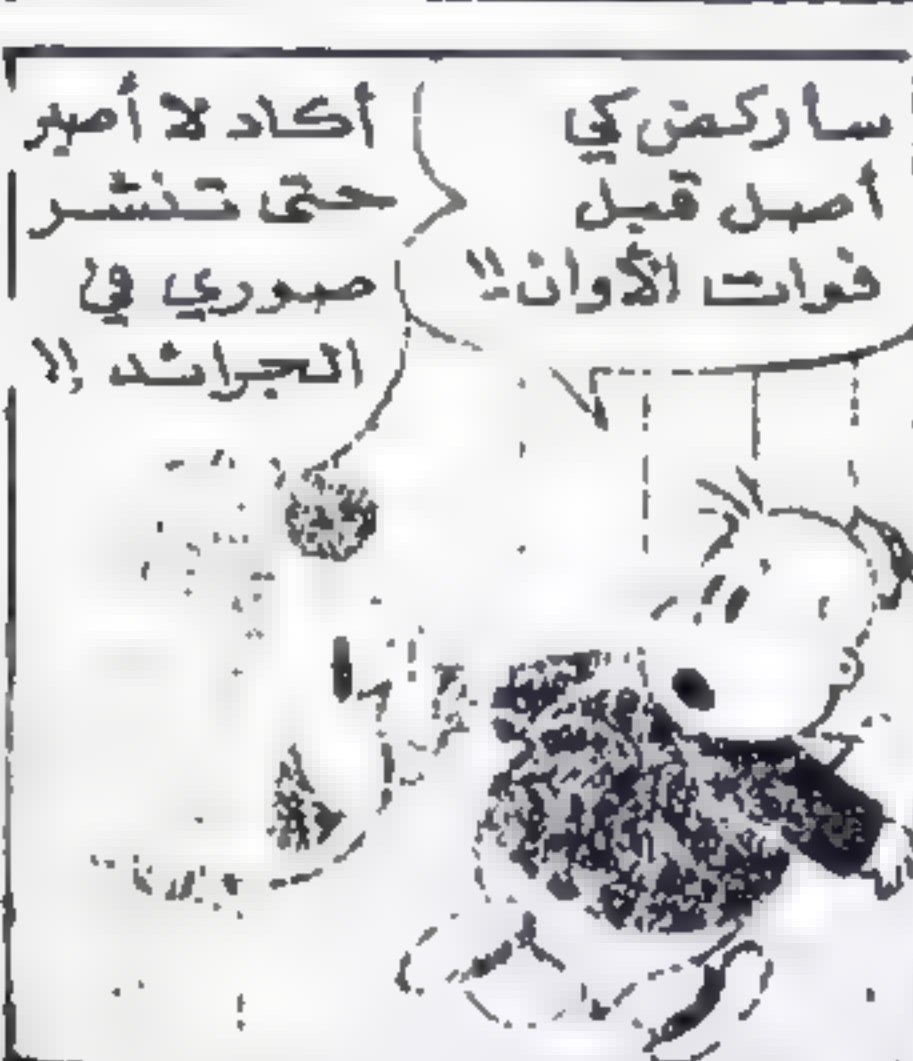 سأركض كي
أصل قبل
فوات الأوان!!
أكاد لا أصبر
حتى تنشر
صوري في
الجرائد!!